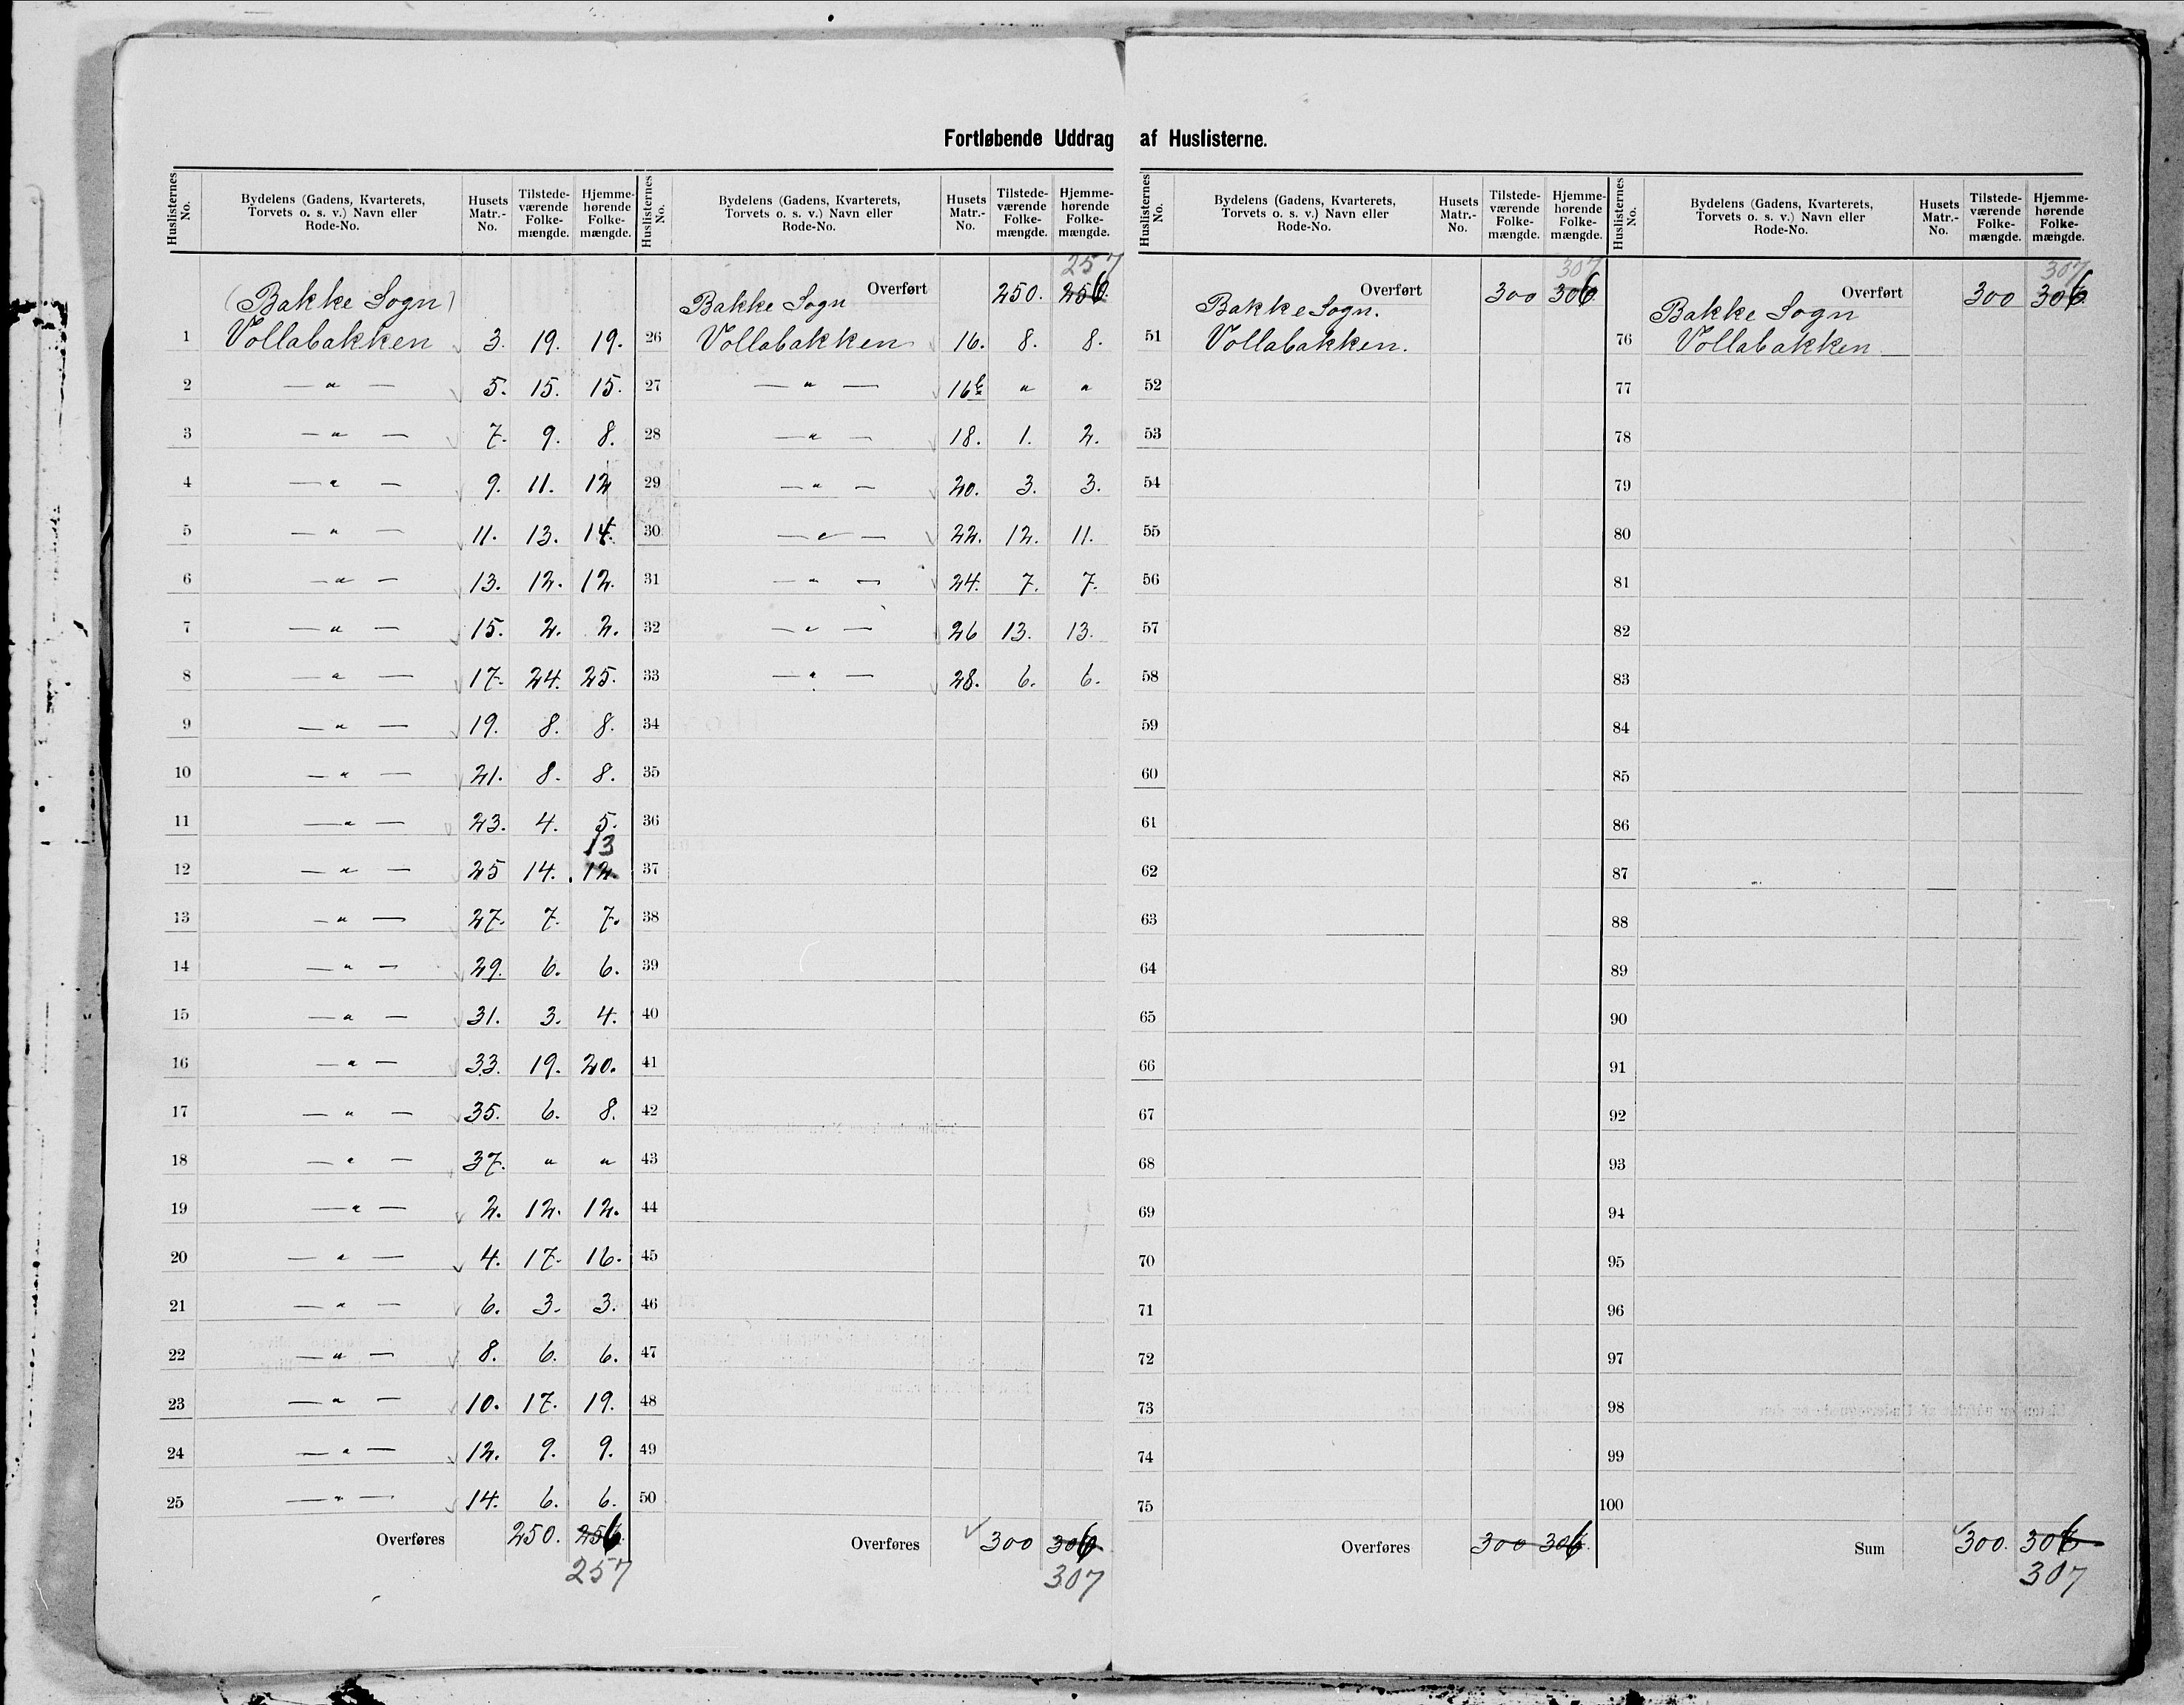 Fortløbende Uddrag af Huslisterne.
Huslisternes No. Bydelens (Gadens, Kvarterets, Torvets o. s. v.) Navn eller Rode-No. Husets Matr.-No. Tilstede-værende Folke-mængde. Hjemme-hørende Folke-mængde.
(Bakke Sogn)
1 Vollabakken 3. 19. 19.
2 — " — 5. 15. 15.
3 — " — 7. 9. 8.
4 — " — 9. 11. 12
5 — " — 11. 13. 14.
6 — " — 13. 12. 12.
7 — " — 15. 2. 2.
8 — " — 17. 24. 25.
9 — " — 19. 8. 8.
10 — " — 21. 8. 8.
11 — " — 23. 4. 5.
13
12 — " — 25 14. 12.
13 — " — 27. 7. 7.
14 — " — 29. 6. 6.
15 — " — 31. 3. 4.
16 — " — 33. 19. 20.
17 — " — 35. 6. 8.
18 — " — 37. " "
19 — " — 2. 12. 12.
20 — " — 4. 17. 16.
21 — " — 6. 3. 3.
22 — " — 8. 6. 6.
23 — " — 10. 17. 19.
24 — " — 12. 9. 9.
25 — " — 14. 6. 6.
Overføres 250. 256.
257
Huslisternes No. Bydelens (Gadens, Kvarterets, Torvets o. s. v.) Navn eller Rode-No. Husets Matr.-No. Tilstede-værende Folke-mængde. Hjemme-hørende Folke-mængde.
257
Overført 250. 256.
Bakke Sogn
26 Vollabakken 16. 8. 8.
27 — " — 16b " "
28 — " — 18. 1. 2.
29 — " — 20. 3. 3.
30 — " — 22. 12. 11.
31 — " — 24. 7. 7.
32 — " — 26 13. 13.
33 — " — 28. 6. 6.
34
35
36
37
38
39
40
41
42
43
44
45
46
47
48
49
50
Overføres 300 306
307
Huslisternes No. Bydelens (Gadens, Kvarterets, Torvets o. s. v.) Navn eller Rode-No. Husets Matr.-No. Tilstede-værende Folke-mængde. Hjemme-hørende Folke-mængde.
307
Overført 300 306
Bakke Sogn.
51 Vollabakken.
52
53
54
55
56
57
58
59
60
61
62
63
64
65
66
67
68
69
70
71
72
73
74
75
Overføres 300 306.
Huslisternes No. Bydelens (Gadens, Kvarterets, Torvets o. s. v.) Navn eller Rode-No. Husets Matr.-No. Tilstede-værende Folke-mængde. Hjemme-hørende Folke-mængde.
307
Overført 300 306
Bakke Sogn
76 Vollabakken
77
78
79
80
81
82
83
84
85
86
87
88
89
90
91
92
93
94
95
96
97
98
99
100
Sum 300. 306
307